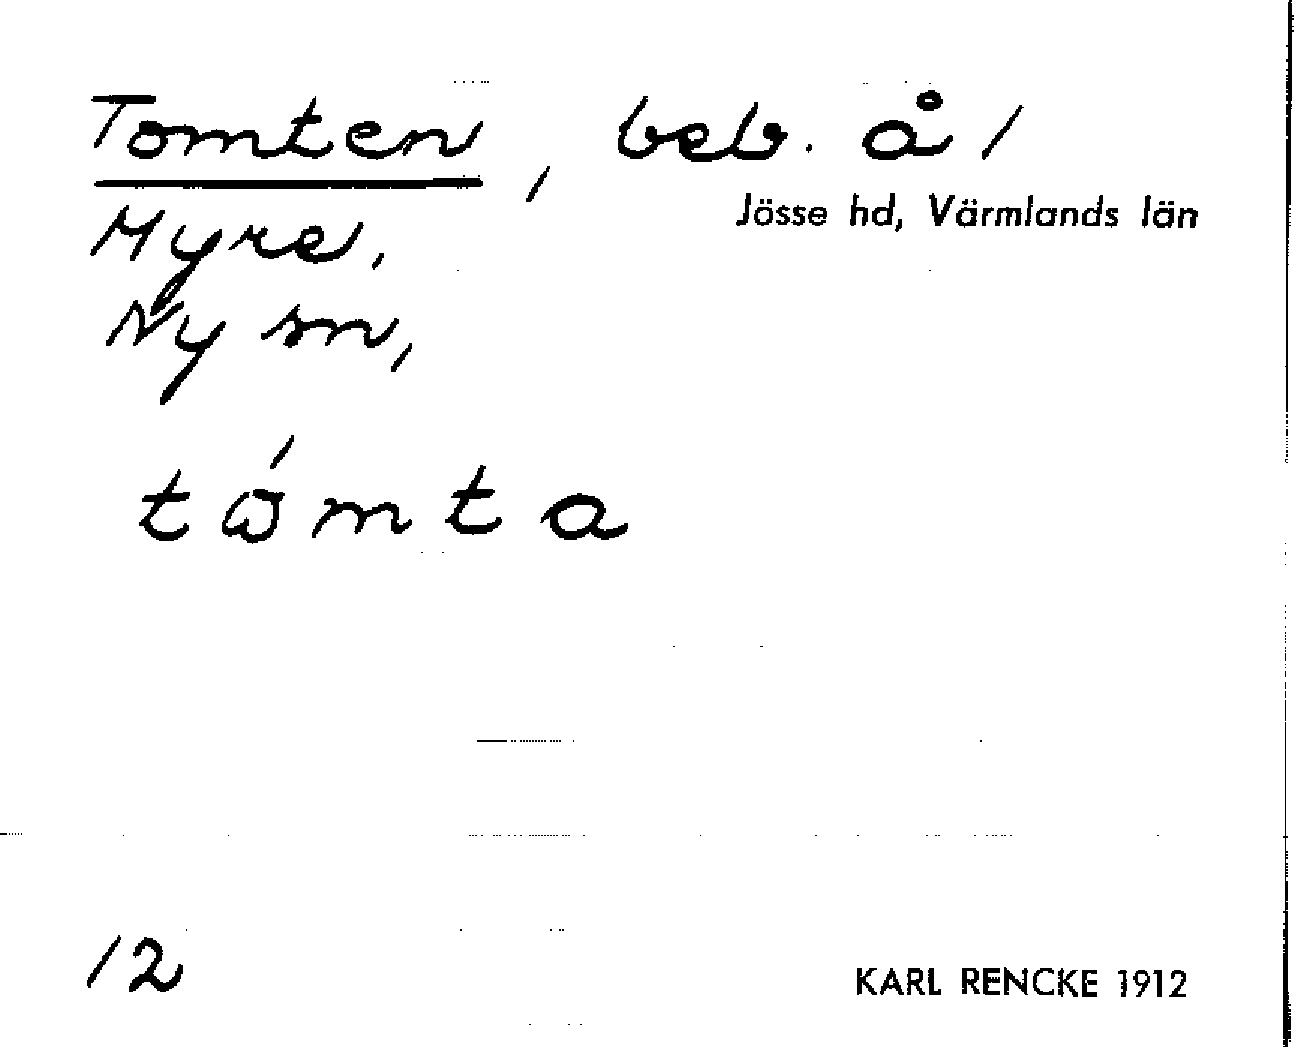 Tomten, beb. å /
Jösse hd, Värmlands län
Myre,
Ny sn,
tώmta
12
KARL RENCKE 1912